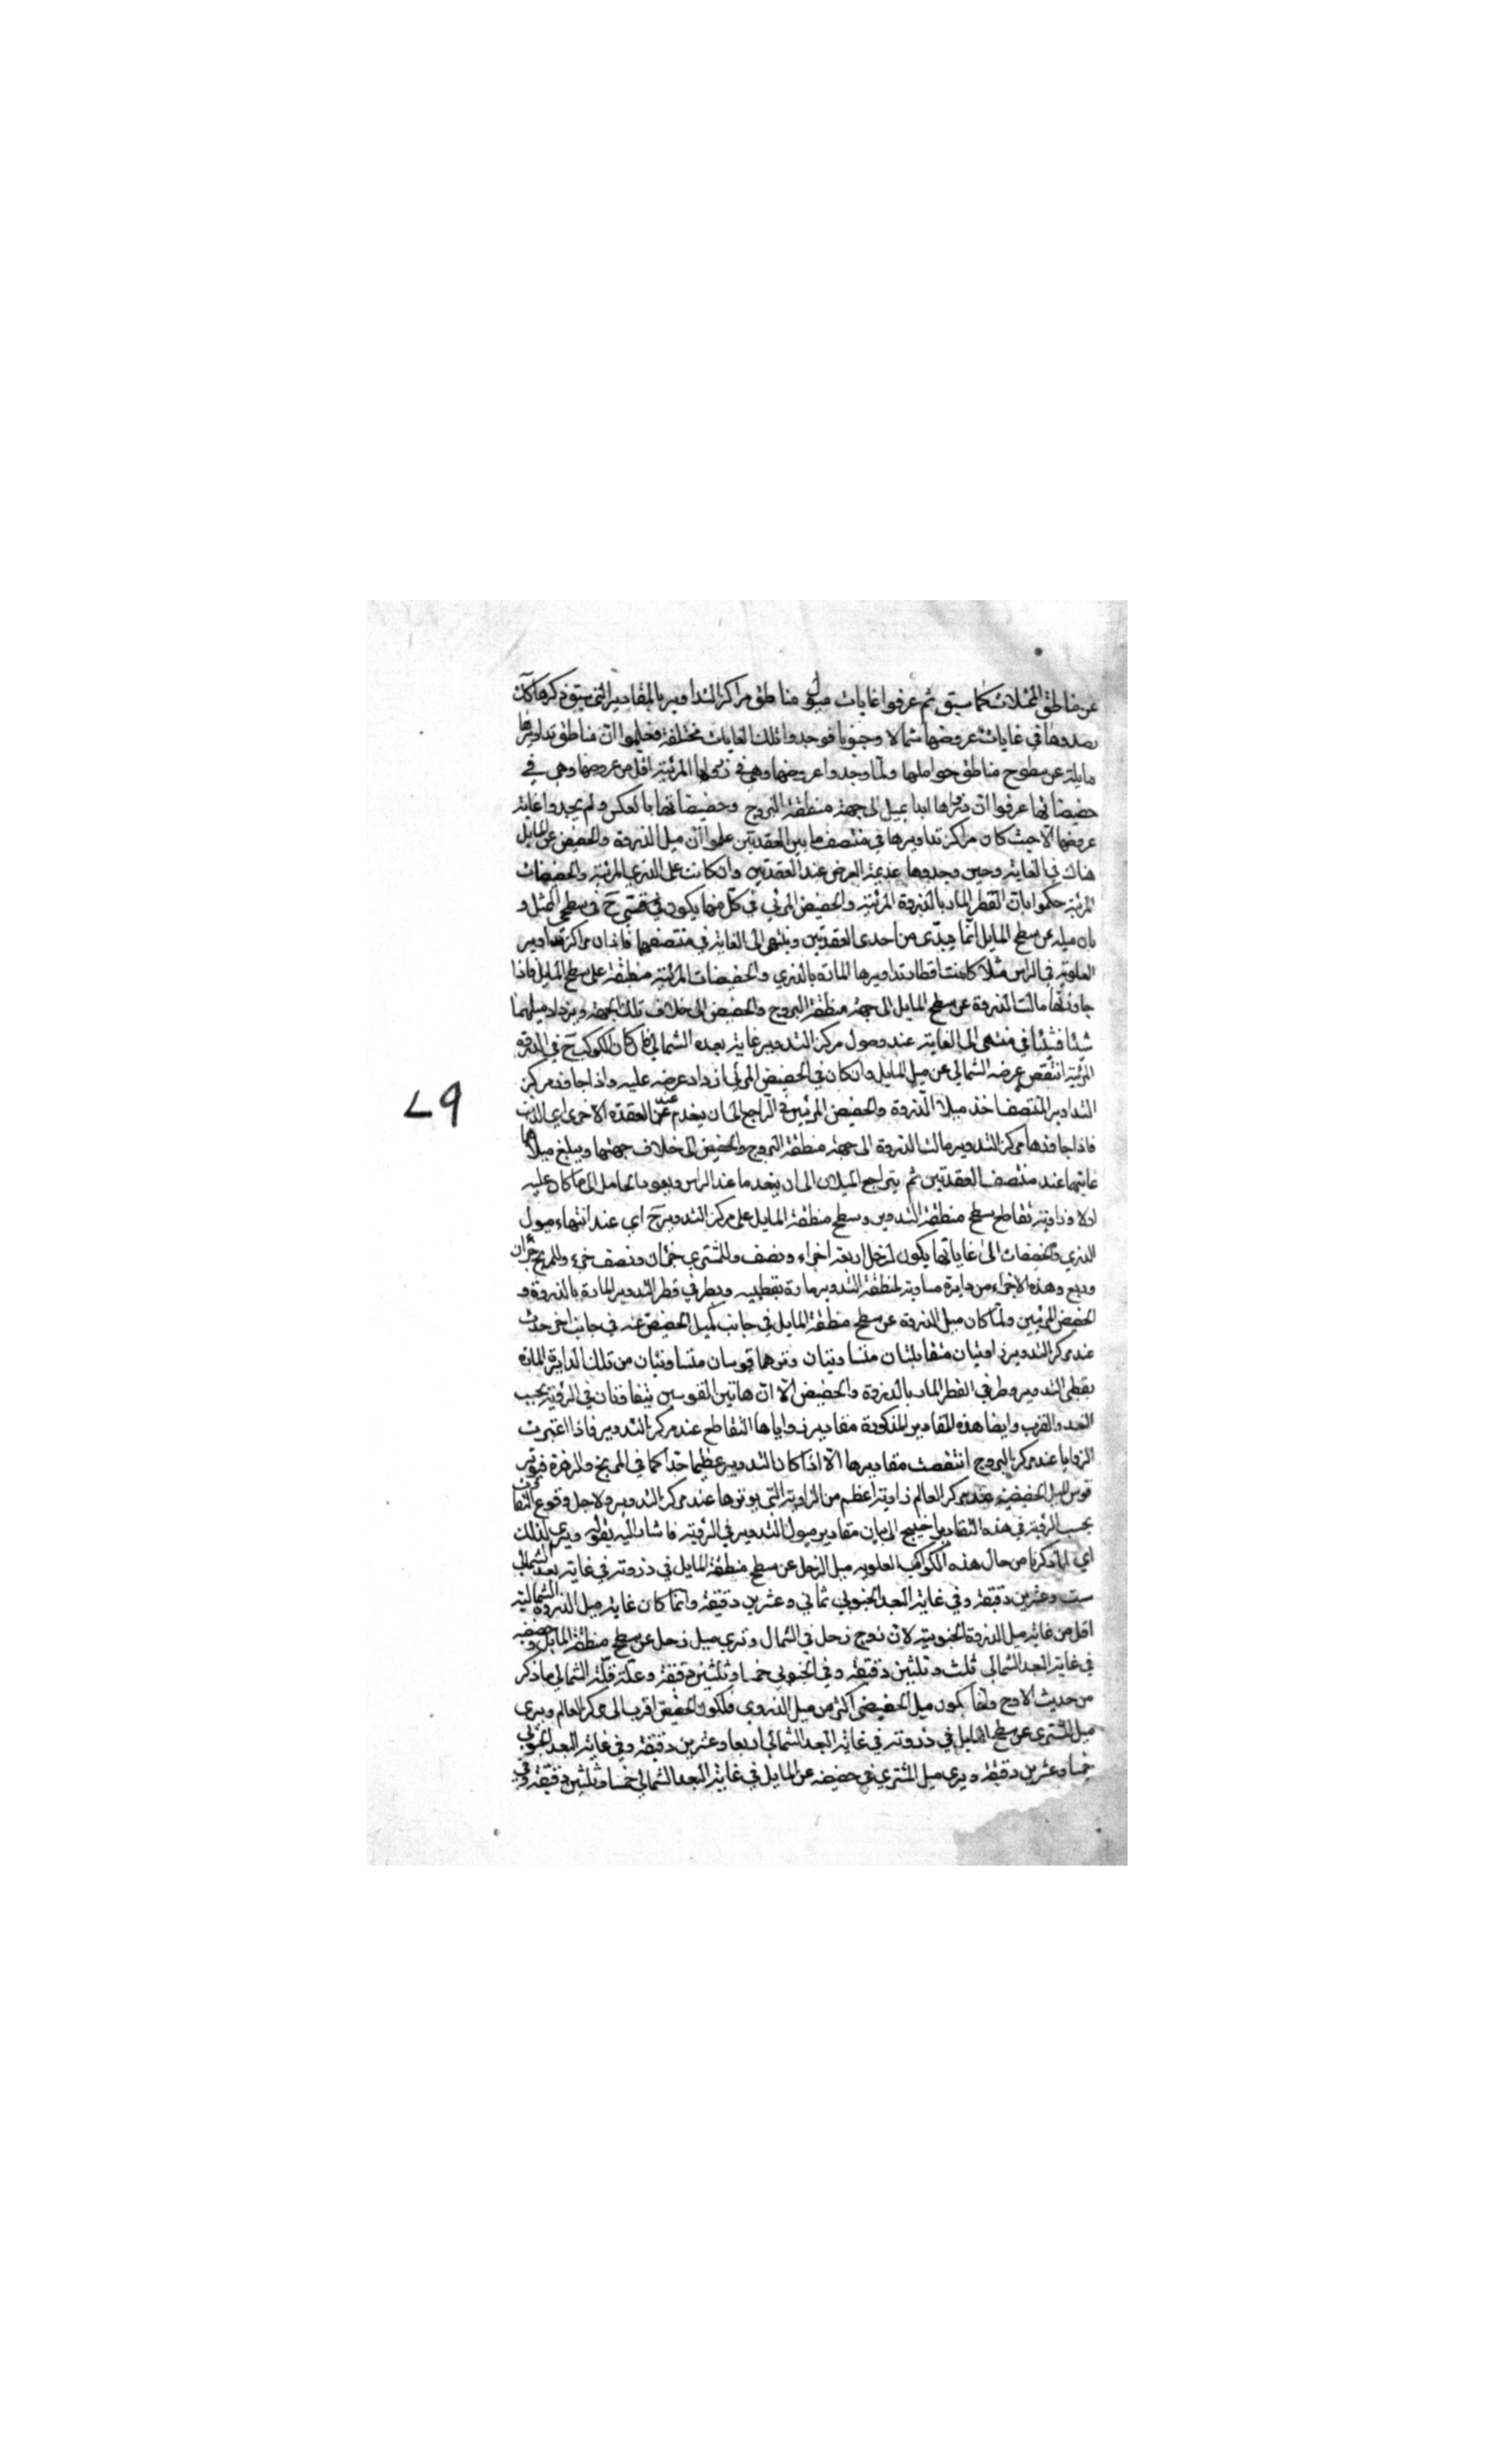 عن مناطق الممثلات كما سبق ثم عرفوا غايات ميول مناطق مراكز التداوير بالمقادير التي سبق ذكرها كان
رصدوها في غايات عروضها شمالا وجنوبا فوجدوا تلك الغايات مختلفة فعلموا ان مناطق تداويرها
مايلة عن سطوح مناطق حواملها ولما وجدوا عروضها وهي في ذراها المرئية اقل من عروضها وهي في
حضيضاتها عرفوا ان ذراها ابدا يميل الى جهة منطقة البروج وحضيضاتها بالعكس ولم يجدوا غاية
عروضها الا حيث كان مراكز تداويرها في منتصف ما بين العقدتين علموا ان ميل الذروة والحضيض عن المايل
هناك في الغاية وحين وجدوها عديمة العرض عند العقدتين وان كانت على الذري المرئية والحضيضات
المرئية حكموا بان القطر المار بالذروة المرئية والحضيض المرئي في كل منها يكون في حَ في سطحي الممثل و
بان ميله عن سطح المايل انما يبتدى من احدى العقدتين وينتهي الى الغاية في منتصفهما فاذن مراكز تداوير
العلوية في الراس مثلا كانت اقطار تداويرها المارة بالذري والحضيضات المرئية منطبقة على سطح المايل فاذا
جاوزتها مالت الذروة عن سطح المايل الى جهة منطقة البروج والحضيض الى خلاف تلك الجهة ويزداد ميلهما
شئا فشئا في منتهى الى الغاية عند وصول مركز التدوير غاية بعده الشمالي فان كان الكوكب حَ في الذروة
المرئية انتقص عرضه الشمالي عن ميل المايل وان كان في الحضيض المرئي زاد عرضه عليه واذا جاوز مركز
التداوير المنتصف اخذ ميلا الذروة والحضيض المرئيين في التراجع الى ان ينعدم عند العقدة الاخرى اي الذنب
فاذا جاوزها مركز التدوير مالت الذروة الى جهة منطقة البروج والحضيض الى خلاف جهتها ويبلغ ميلاهما
غايتهما عند منتصف العقدتين ثم يتراجع الميلان الى ان ينعدما عند الراس ويعود الحامل الى ما كان عليه
اولا وزاوية تقاطع سطح منطقة التدوير وسطح منطقة المايل على مركز التدوير حَ اي عند انتهاء ميول
الذري والحضيضات الى غاياتها يكون لزحل اربعة اجزاء ونصف وللمشتري جزءان ونصف جزء وللمريخ جزءان
وربع وهذه الاجزاء من دايرة مساوية لمنطقة التدوير مارة بقطبيه وبطرفي قطر التدوير المارة بالذروة و
الحضيض المرئيين ولما كان ميل الذروة عن سطح منطقة المايل في جانب كميل الحضيض عنه في جانب اخر حدث
عند مركز التدوير زاويتان متقابلتان متساويتان وترهما قوسان متساويتان من تلك الدايرة المارة
بقطبي التدوير وطرفي القطر المار بالذروة والحضيض الا ان هاتين القوسين يتفاوتان في الرؤية بحسب
البعد والقرب وايضا هذه المقادير المذكورة مقادير زوايا هذا التقاطع عند مركز التدوير فاذا اعتبرت
الزوايا عند مركز البروج انتقصت مقاديرها الا اذا كان التدوير عظيما جدا كما في المريخ والزهرة فيوتر
قوس الميل الحضيضية عند مركز العالم زاوية اعظم من الزاوية التي يوترها عند مركز التدوير ولاجل وقوع التفاوت
بحسب الرؤية في هذه التقادير احتيج الى بيان مقادير ميول التدوير في الرؤية فاشار اليه بقوله ويرى لذلك
اي لما ذكرنا من حال هذه الكواكب العلوية ميل الزحل عن سطح منطقة المايل في ذروته في غاية بعده الشمالي
ست وعشرين دقيقة وفي غاية البعد الجنوبي ثماني وعشرين دقيقة وانما كان غاية ميل الذروة الشمالية
اقل من غاية ميل الذروة الجنوبية لان اوج زحل في الشمال ويرى ميل زحل عن سطح منطقة المايل و حضيضه
في غاية البعد الشمالي ثلث وثلثين دقيقة وفي الجنوبي خمسا وثلثين دقيقة وعلة قلة الشمالي ما ذكر
من حديث الاوج وانما يكون ميل الحضيضي اكثر من ميل الذروي فلكون الحضيض اقرب الى مركز العالم ويرى
ميل المشتري عن سطح المايل في ذروته في غاية البعد الشمالي اربعا وعشرين دقيقة وفي غاية البعد الجنوبي
خمسا وعشرين دقيقة ويرى ميل المشتري في حضيضه عن المايل في غاية البعد الشمالي خمسا وثلثين دقيقة وفي